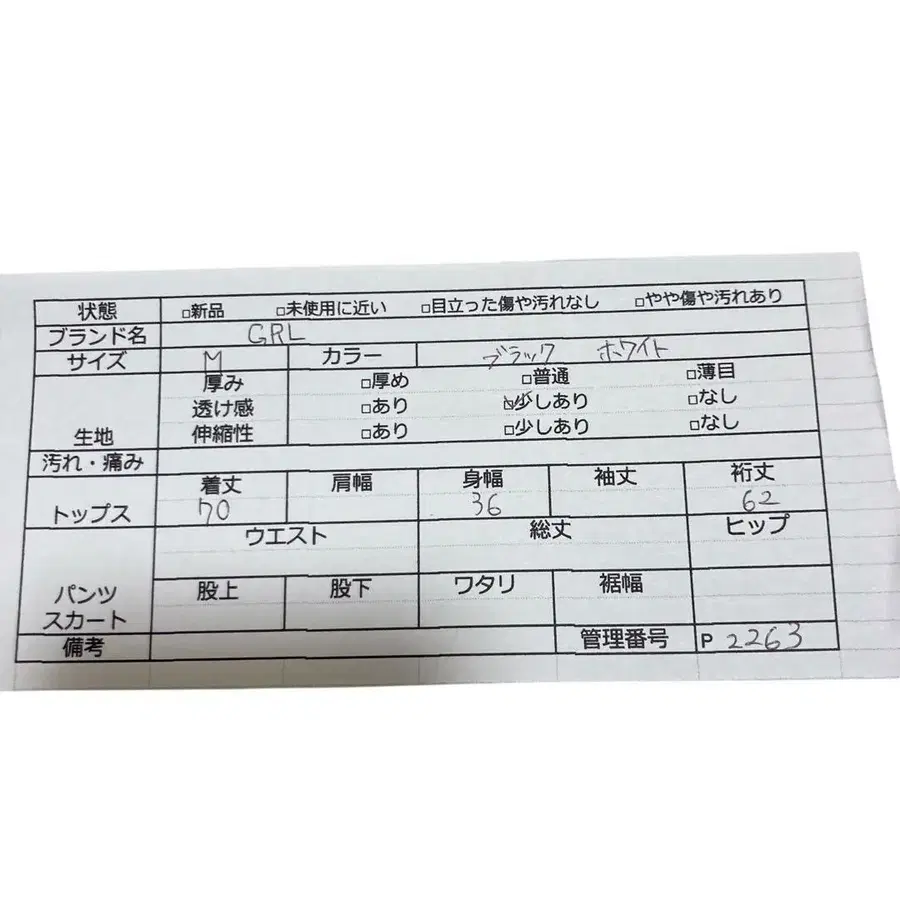 状態 □新品 □未使用に近い □目立った傷や汚れなし □やや傷や汚れあり
ブランド名 GRL
サイズ M カラー ブラック ホワイト
厚み □厚め □普通 □薄目
透け感 □あり ☑少しあり □なし
生地 伸縮性 □あり □少しあり □なし
汚れ・痛み
着丈 肩幅 身幅 袖丈 裄丈
トップス 70 36 62
ウエスト 総丈 ヒップ
股上 股下 ワタリ 裾幅
パンツ
スカート
備考 管理番号 P 2263